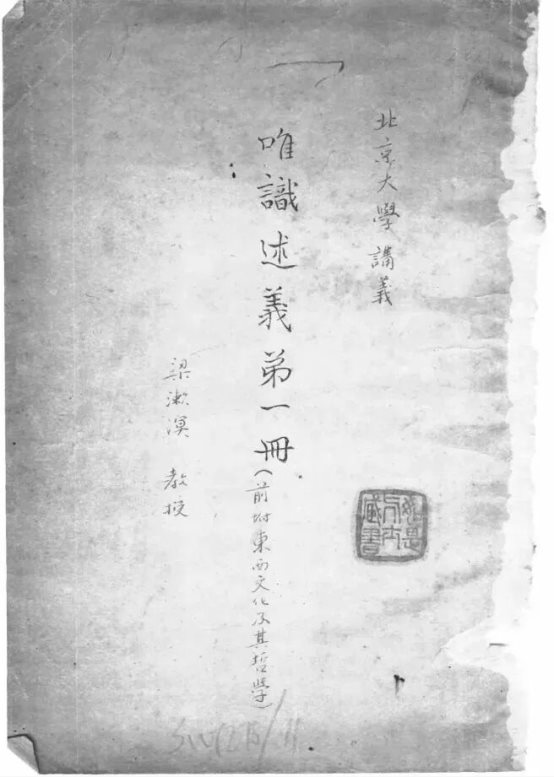 北京大學講義
唯識述義第一冊(前附東西文化及其哲學)
梁漱溟 教授
藏書